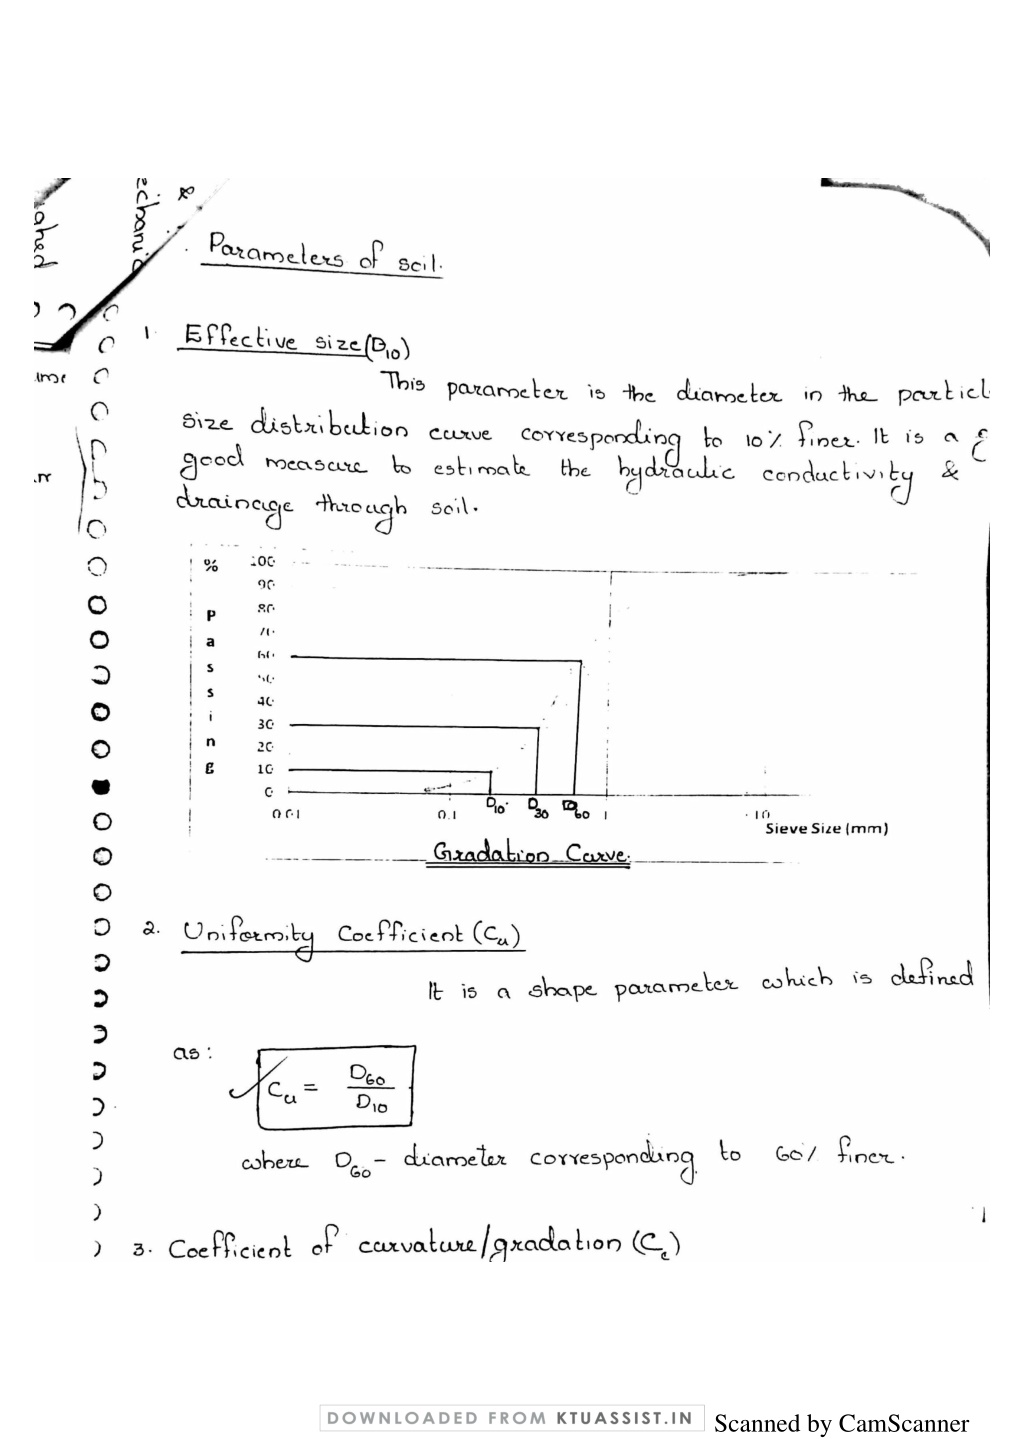 echanic
ahed
Parameters of soil.
1. Effective size (D10)
This parameter is the diameter in the particl
size distribution curve corresponding to 10% finer. It is a g
good measure to estimate the hydraulic conductivity &
drainage through soil.
% Passing
100
90
80
70
60
50
40
30
20
10
0
0.01 0.1 D10 D30 D60 1 10
Sieve Size (mm)
Gradation Curve.
2. Uniformity Coefficient (Cu)
It is a shape parameter which is defined
as:
Cu = D60 / D10
where D60 - diameter corresponding to 60% finer.
3. Coefficient of curvature/gradation (Cc)
DOWNLOADED FROM KTUASSIST.IN
Scanned by CamScanner